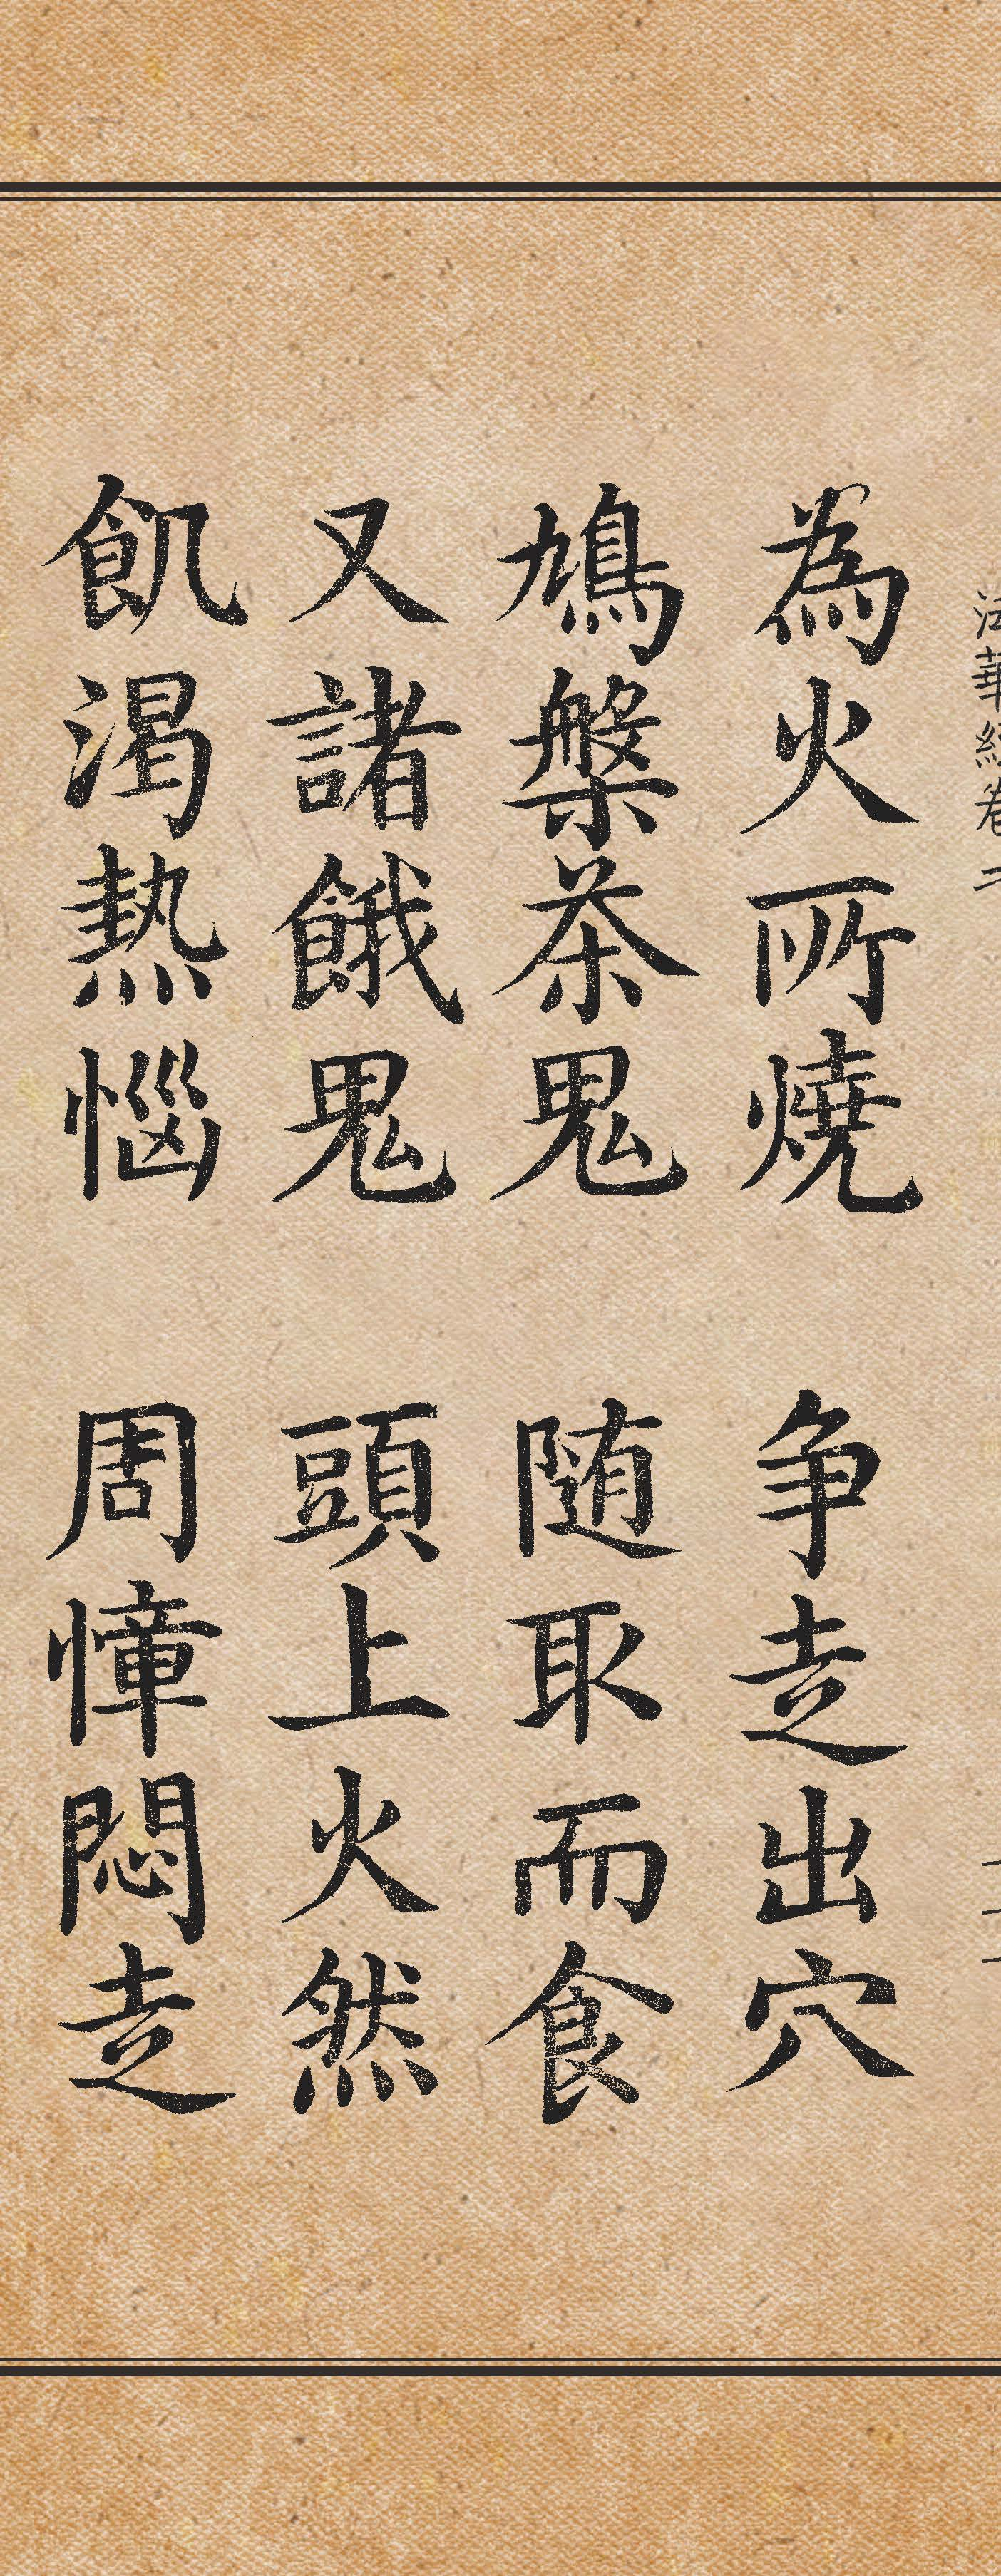 法華經卷二
為火所燒 争走出穴
鳩槃茶鬼 随取而食
又諸餓鬼 頭上火然
飢渴熱惱 周慞悶走